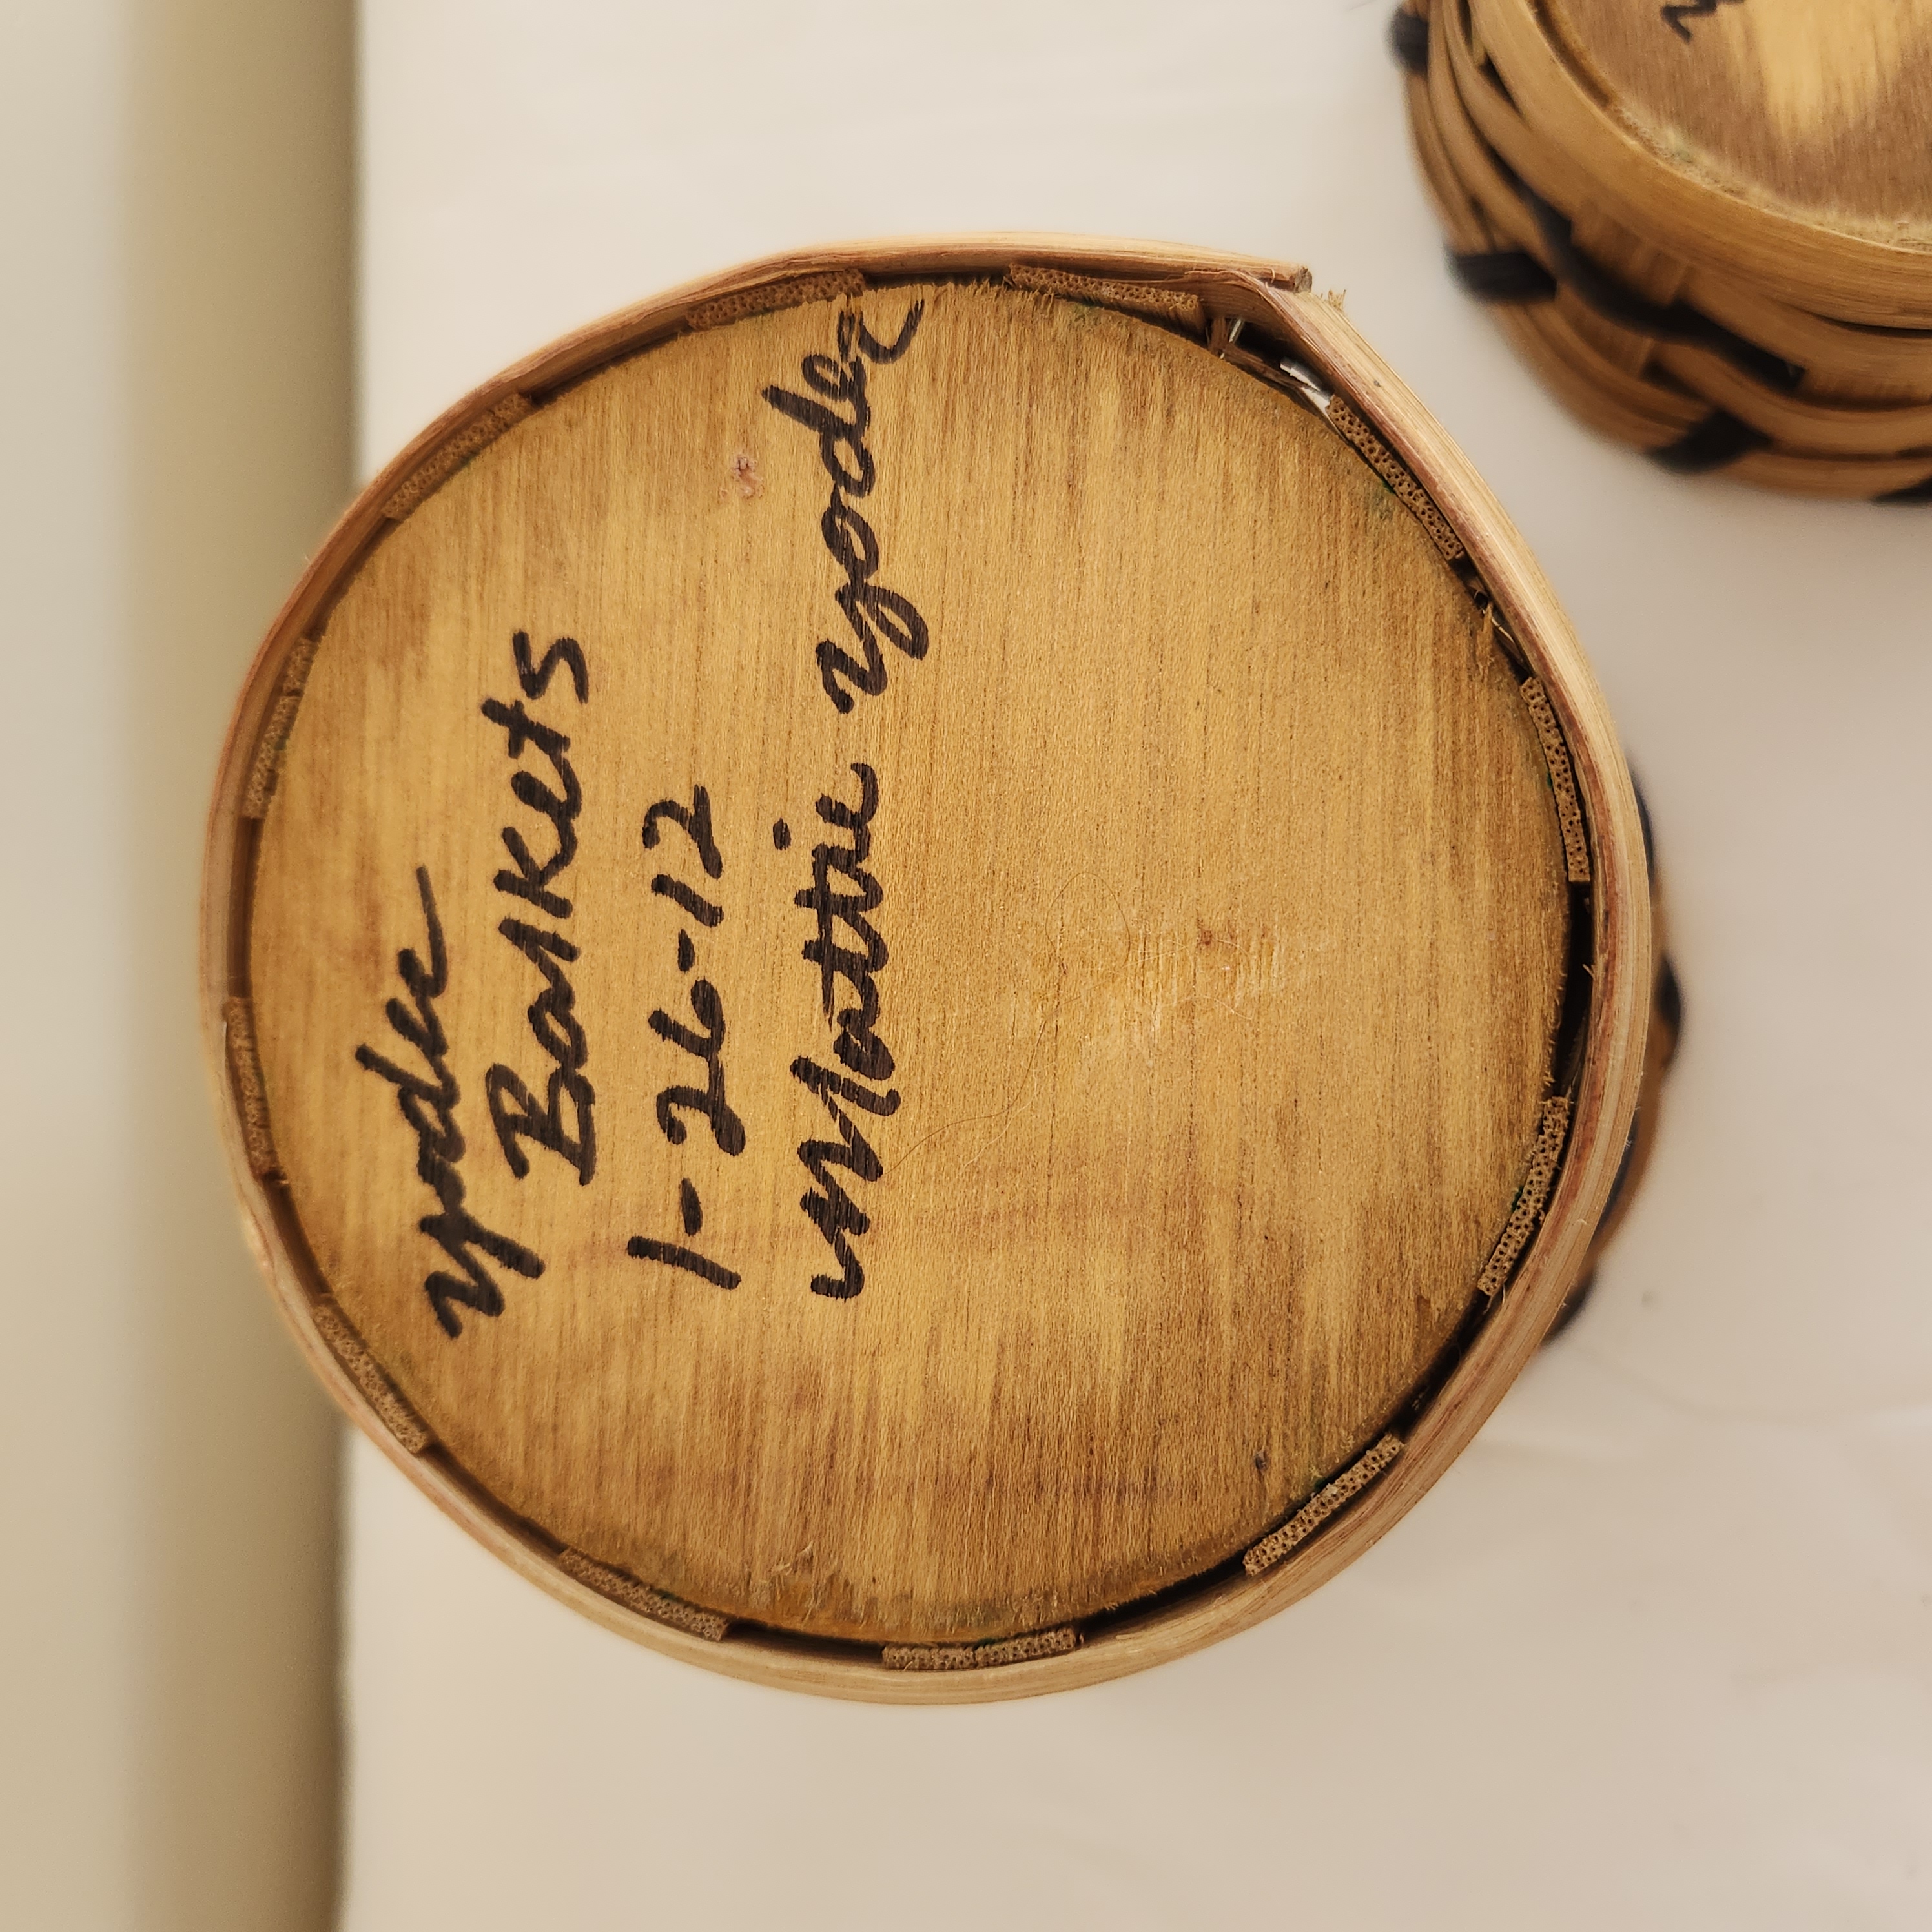 yoder
Baskets
1-26-12
Mattie yoder